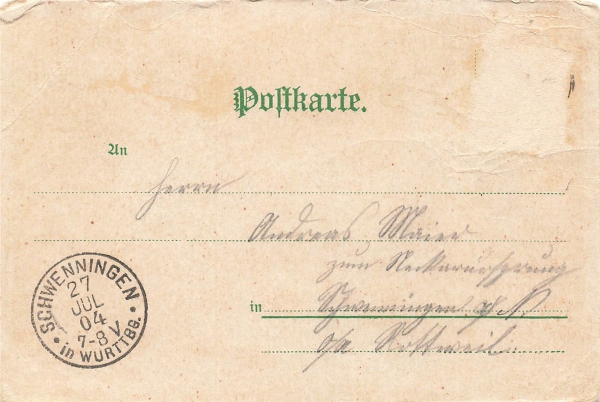 Postkarte.
An
Herrn
Andreas Maier
zum Neckarursprung
in Schwenningen a/N
o/a Rottweil
SCHWENNINGEN
27
JUL
04
7-8 V
in WÜRTTBG.